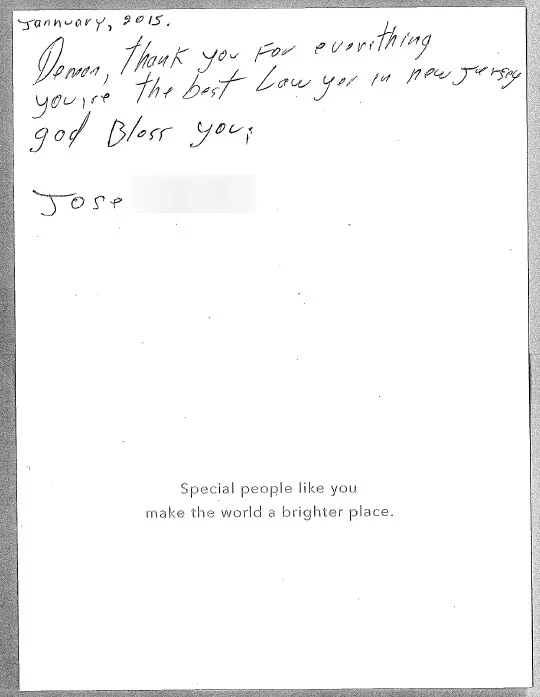 Jannuary, 2015.
Demon, thank you For everithing
you,re the best Lawyer in new Jersey
god Bless you;
Jose
Special people like you
make the world a brighter place.